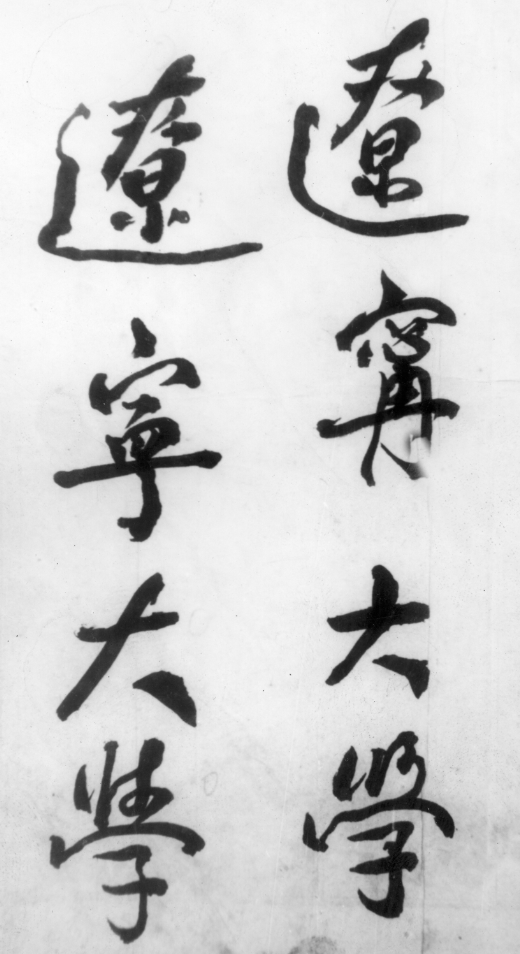 遼甯大學
遼寧大學